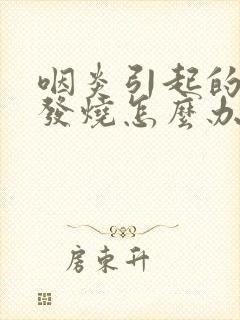 咽炎引起的
發燒怎麼办
房東升